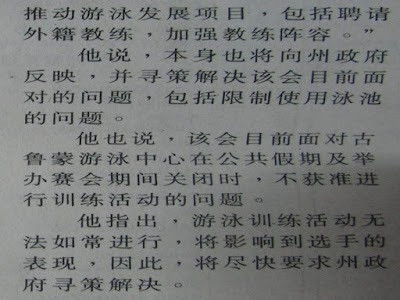 推动游泳发展项目，包括聘请
外籍教练，加强教练阵容。”
他说，本身也将向州政府
反映，并寻策解决该会目前面
对的问题，包括限制使用泳池
的问题。
他也说，该会目前面对古
鲁蒙游泳中心在公共假期及举
办赛会期间关闭时，不获准进
行训练活动的问题。
他指出，游泳训练活动无
法如常进行，将影响到选手的
表现，因此，将尽快要求州政
府寻策解决。